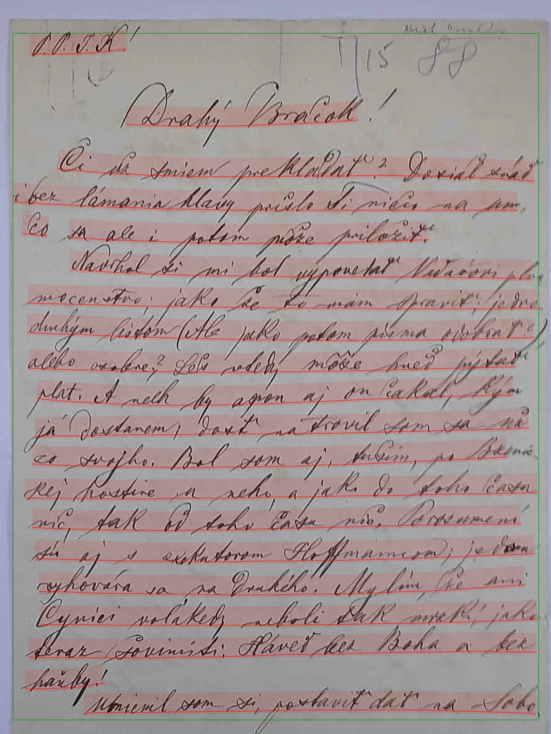 P. P. T. K!
I/15 88
Drahý Bračok!
Či už smiem prekladať? Doziaľ snáď
i bez lámania hlavy prišlo Ti niečo na um,
čo sa ale i potom môže priložiť.
Navrhol si mi bol vypovedať plno
mocenstvo; jako že to mám spraviť, jedno
druhým listom (Ale jako potom písma odobrať?)
alebo osobne? Lež vtedy môže hneď pýtať
plat. A nech by aspon aj on čakal, kým
já dostanem, dosť natrovil som sa na
čo svojho. Bol som aj, tuším, po
kej hostine u neho, a jako do toho času
nič, tak od toho času nič. Porozumení
sú aj s exekutorom Hoffmannom; jeden
vyhovára sa na Druhého. Myslím, že ani
volákedy neboli tak mrzkí, jako
teraz šovinisti. Háveď bez Boha a bez
hanby!
Umienil som si, postaviť dať na